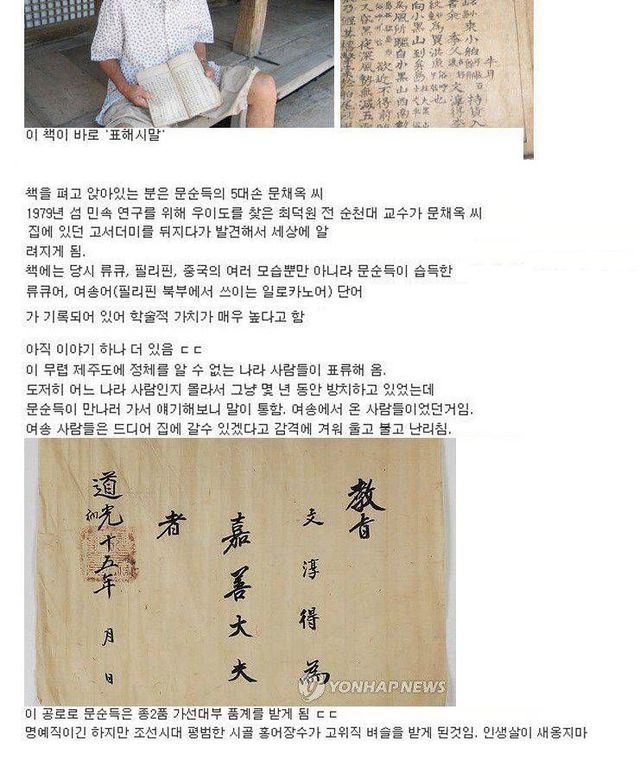 半月
持貨入
文淳得
向小黑山到
爲風所驅
黑山西南
黑夜深風勢無減五
이 책이 바로 '표해시말'
책을 펴고 앉아있는 분은 문순득의 5대손 문채옥 씨
1979년 섬 민속 연구를 위해 우이도를 찾은 최덕원 전 순천대 교수가 문채옥 씨
집에 있던 고서더미를 뒤지다가 발견해서 세상에 알
려지게 됨.
책에는 당시 류큐, 필리핀, 중국의 여러 모습뿐만 아니라 문순득이 습득한
류큐어, 여송어(필리핀 북부에서 쓰이는 일로카노어) 단어
가 기록되어 있어 학술적 가치가 매우 높다고 함
아직 이야기 하나 더 있음 ㄷㄷ
이 무렵 제주도에 정체를 알 수 없는 나라 사람들이 표류해 옴.
도저히 어느 나라 사람인지 몰라서 그냥 몇 년 동안 방치하고 있었는데
문순득이 만나러 가서 얘기해보니 말이 통함. 여송에서 온 사람들이었던거임.
여송 사람들은 드디어 집에 갈수 있겠다고 감격에 겨워 울고 불고 난리침.
教旨
文淳得爲
嘉善大夫
者
道光十五年 月 日
YONHAP NEWS
이 공로로 문순득은 종2품 가선대부 품계를 받게 됨 ㄷㄷ
명예직이긴 하지만 조선시대 평범한 시골 홍어장수가 고위직 벼슬을 받게 된것임. 인생살이 새옹지마